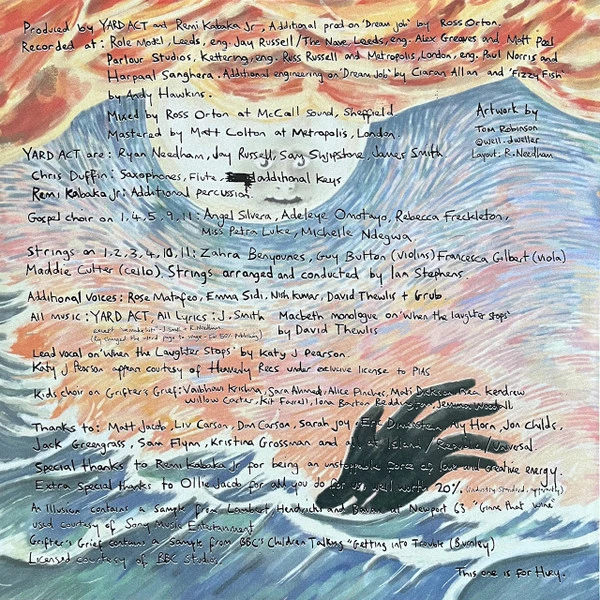 Produced by YARD ACT and Remi Kabaka Jr, Additional prod on 'Dream job' by Ross Orton.
Recorded at: Role Model, Leeds, eng. Jay Russell / The Nave, Leeds, eng. Alex Greaves and Matt Peel
Parlour Studios, Kettering, eng. Russ Russell and Metropolis, London, eng. Paul Norris and
Harpaal Sanghera. Additional engineering on 'Dream Job' by Ciaran Allan and 'Fizzy Fish'
by Andy Hawkins.
Mixed by Ross Orton at McCall Sound, Sheffield
Mastered by Matt Colton at Metropolis, London.
Artwork by
Tom Robinson
@well.dweller
Layout: R. Needham
YARD ACT are: Ryan Needham, Jay Russell, Sam Shjipstone, James Smith
Chris Duffin: Saxophones, Flute, additional keys
Remi Kabaka Jr: Additional percussion.
Gospel choir on 1, 4, 5, 9, 11: Angel Silvera, Adeleye Omotayo, Rebecca Freckleton,
Miss Petra Luke, Michelle Ndegwa.
Strings on 1, 2, 3, 4, 10, 11: Zahra Benyounes, Guy Button (violins) Francesca Gilbert (viola)
Maddie Cutter (cello). Strings arranged and conducted by Ian Stephens.
Additional Voices: Rose Matafeo, Emma Sidi, Nish Kumar, David Thewlis + Grub.
All Music: YARD ACT, All Lyrics: J. Smith
except J. Smith + R. Needham
Macbeth monologue on 'When the laughter stops'
by David Thewlis
Lead vocal on 'When the Laughter Stops' by Katy J Pearson.
Katy J Pearson appears courtesy of Heavenly Recs under exclusive license to PIAS
Kids choir on Grifter's Grief: Vaibhavi Krishna, Sara Ahmed, Alice Pinches, Mati Dickson, Bea Kendrew
Willow Carter, Kit Farrell, Iona Barton Jemima Woodall
Thanks to: Matt Jacob, Liv Carson, Dan Carson, Sarah Joy, Eric Dimenstein, My Horn, Jon Childs,
Jack Greengrass, Sam Flynn, Kristina Grossman and all at Island / Republic / Universal
Special thanks to Remi Kabaka Jr for being an unstoppable force of love and creative energy.
Extra special thanks to Ollie Jacob for all you do for us, well worth 20%. (industry standard, apparently)
An Illusion contains a sample from Lambert Hendricks and Bavan at Newport 63 "Gimme that wine"
used courtesy of Sony Music Entertainment
Grifter's Grief contains a sample from BBC's Children Talking "Getting into Trouble (Burnley)"
Licensed courtesy of BBC Studios.
This one is for Huey.